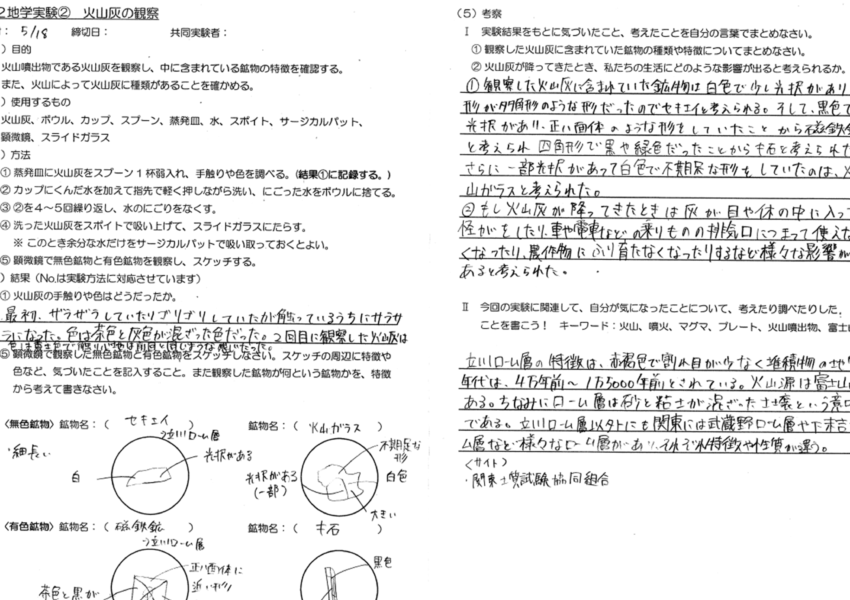 2地学実験② 火山灰の観察
: 5/18 締切日: 共同実験者:
)目的
火山噴出物である火山灰を観察し、中に含まれている鉱物の特徴を確認する。
また、火山によって火山灰に種類があることを確かめる。
)使用するもの
火山灰、ボウル、カップ、スプーン、蒸発皿、水、スポイト、サージカルパット、
顕微鏡、スライドガラス
)方法
① 蒸発皿に火山灰をスプーン1杯弱入れ、手触りや色を調べる。(結果①に記録する。)
② カップにくんだ水を加えて指先で軽く押しながら洗い、にごった水をボウルに捨てる。
③ ②を4~5回繰り返し、水のにごりをなくす。
④ 洗った火山灰をスポイトで吸い上げて、スライドガラスにたらす。
※ このとき余分な水だけをサージカルパットで吸い取っておくとよい。
⑤ 顕微鏡で無色鉱物と有色鉱物を観察し、スケッチする。
)結果(No.は実験方法に対応させています)
① 火山灰の手触りや色はどうだったか。
最初、ザラザラしていたりゴリゴリしていたが触っているうちにサラサ
ラになった。色は茶色と灰色が混ざった色だった。2回目に観察した火山灰は
⑤ 顕微鏡で観察した無色鉱物と有色鉱物をスケッチしなさい。スケッチの周辺に特徴や
色など、気づいたことを記入すること。また観察した鉱物が何という鉱物かを、特徴
から考えて書きなさい。
〈無色鉱物〉鉱物名:( セキエイ )
立川ローム層
・細長い
白
光沢がある
鉱物名:( 火山ガラス )
不規則な形
光沢がある
(一部)
白色
大きい
〈有色鉱物〉鉱物名:( 磁鉄鉱 )
立川ローム層
正八面体に
近い形
茶色と黒が
鉱物名:( キ石 )
黒色
(5)考察
Ⅰ 実験結果をもとに気づいたこと、考えたことを自分の言葉でまとめなさい。
① 観察した火山灰に含まれていた鉱物の種類や特徴についてまとめなさい。
② 火山灰が降ってきたとき、私たちの生活にどのような影響が出ると考えられるか。
① 観察した火山灰に含まれていた鉱物は白色で少し光沢があり
形が多角形のような形だったのでセキエイと考えられる。そして、黒色で
光沢があり、正八面体のような形をしていたことから磁鉄鉱
と考えられ 四角形で黒や緑色だったことからキ石と考えられた
さらに一部光沢があって白色で不規則な形をしていたのは、火
山ガラスと考えられた。
② もし火山灰が降ってきたときは灰が目や体の中に入って
怪がをしたり、車や電車などの乗りものの排気口につまって使えな
くなったり、農作物にふり育たなくなったりするなど様々な影響が
あると考えられた。
Ⅱ 今回の実験に関連して、自分が気になったことについて、考えたり調べたりした
ことを書こう! キーワード:火山、噴火、マグマ、プレート、火山噴出物、富士
立川ローム層の特徴は、赤褐色で割れ目が少なく堆積物の地
年代は、4万年前~1万5000年前とされている。火山源は富士山
ある。ちなみにローム層は砂と粘土が混ざった土壌という意
である。立川ローム層以外にも関東には武蔵野ローム層や下末吉
ム層など様々なローム層があり、それぞれ特徴や性質が違う。
〈サイト〉
・関東土質試験協同組合